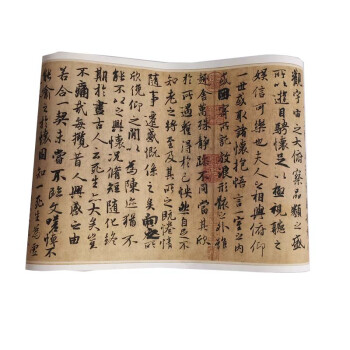 觀宇宙之大俯察品類之盛
所以遊目騁懷足以極視聽之
娛信可樂也夫人之相與俯仰
一世或取諸懷抱悟言一室之內
或因寄所託放浪形骸之外雖
趣舍萬殊靜躁不同當其欣
於所遇暫得於己怏然自足不
知老之將至及其所之既惓情
隨事遷感慨係之矣向之所
欣俛仰之閒以為陳迹猶不
能不以之興懷況脩短隨化終
期於盡古人云死生亦大矣豈
不痛哉每攬昔人興感之由
若合一契未嘗不臨文嗟悼不
能喻之於懷固知一死生為虛